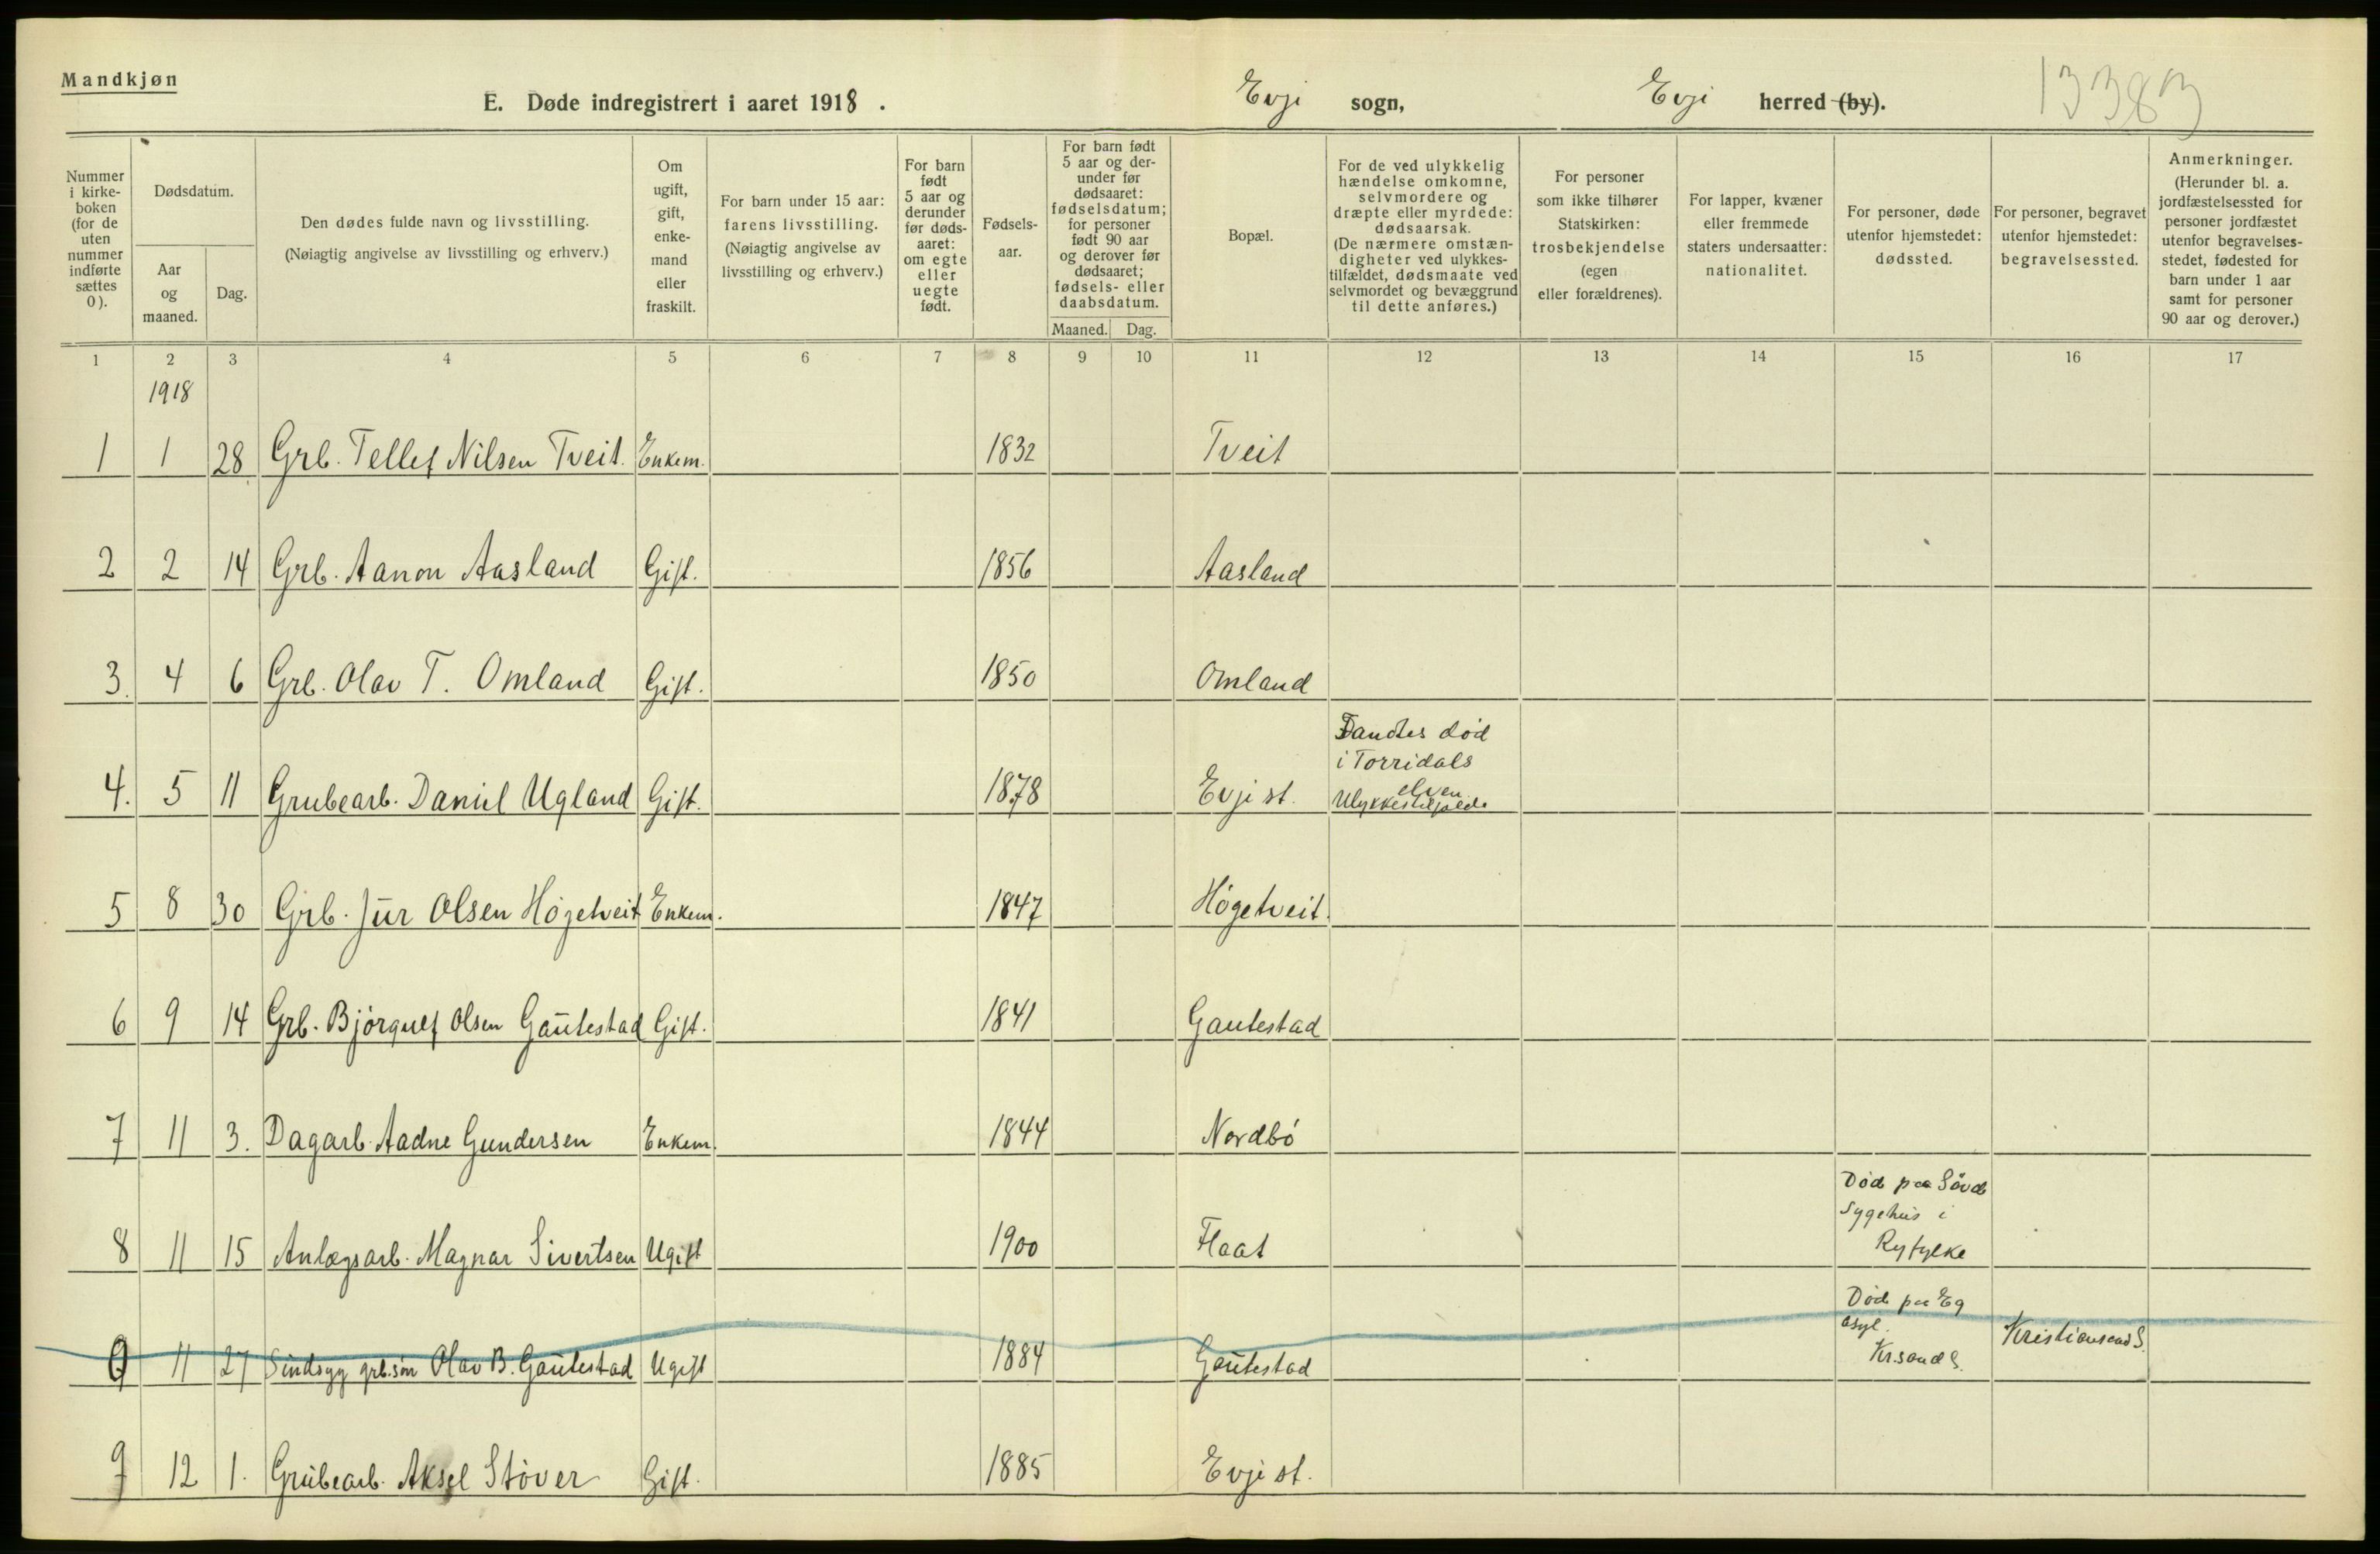 Mandkjøn
E. Døde indregistrert i aaret 1918. Evje sogn, Evje herred (by). 13383
Nummer i kirke-boken (for de uten nummer indførte sættes 0).
Dødsdatum.
Aar og maaned.
Dag.
Den dødes fulde navn og livsstilling.
(Nøiagtig angivelse av livsstilling og erhverv.)
Om ugift, gift, enke-mand eller fraskilt.
For barn under 15 aar: farens livsstilling. (Nøiagtig angivelse av livsstilling og erhverv.)
For barn født 5 aar og derunder før døds-aaret: om egte eller uegte født.
Fødsels-aar.
For barn født 5 aar og der-under før dødsaaret: fødselsdatum; for personer født 90 aar og derover før dødsaaret; fødsels- eller daabsdatum.
Maaned. Dag.
Bopæl.
For de ved ulykkelig hændelse omkomne, selvmordere og dræpte eller myrdede: dødsaarsak. (De nærmere omstæn-digheter ved ulykkes-tilfældet, dødsmaate ved selvmordet og bevæggrund til dette anføres.)
For personer som ikke tilhører Statskirken: trosbekjendelse (egen eller forældrenes).
For lapper, kvæner eller fremmede staters undersaatter: nationalitet.
For personer, døde utenfor hjemstedet: dødssted.
For personer, begravet utenfor hjemstedet: begravelsessted.
Anmerkninger. (Herunder bl. a. jordfæstelsessted for personer jordfæstet utenfor begravelses-stedet, fødested for barn under 1 aar samt for personer 90 aar og derover.)
1 2 3 4 5 6 7 8 9 10 11 12 13 14 15 16 17
1918
1 1 28 Grb. Tellef Nilsen Tveit. Enkem. 1832 Tveit
2 2 14 Grb. Aanon Aasland Gift. 1856 Aasland
3. 4 6 Grb. Olav T. Omland Gift. 1850 Omland
4. 5 11 Grubearb. Daniel Ugland Gift. 1878 Evje st. Fandtes død
i Torridals
elven.
Ulykkestilfælde
5 8 30 Grb. Jur Olsen Högetveit Enkem. 1847 Högetveit.
6 9 14 Grb. Björgulf Olsen Gautestad Gift. 1841 Gautestad
7 11 3. Dagarb. Aadne Gundersen Enkem. 1844 Nordbö
8 11 15 Anlægsarb. Magnar Sivertsen Ugift 1900 Flaat Död paa
Sygehus i
Ryfylke
0 11 27 Sindsyg grb.sön Olav B. Gautestad Ugift 1884 Gautestad Död paa Eg
asyl.
Kr.sand S. Kristiansand S.
9 12 1. Grubearb. Aksel Stöver Gift. 1885 Evje st.